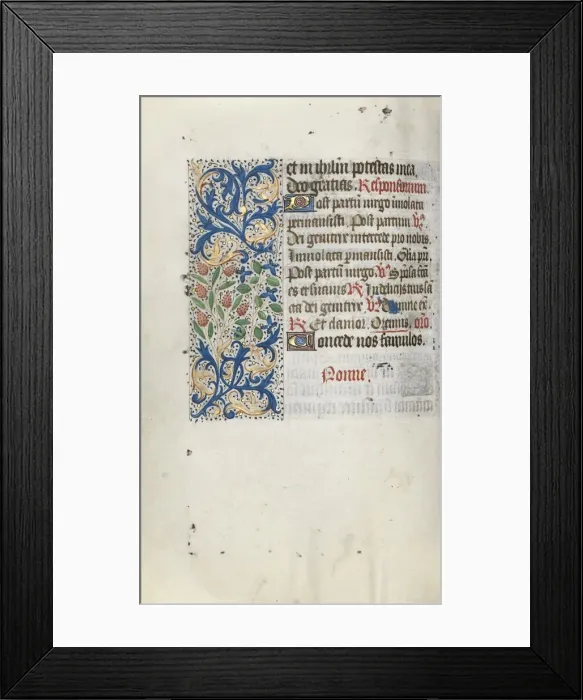 et in ihrlm̄ potestas mea.
Deo gratias. Responsorium.
Post partū virgo īuiolata
permansisti. Post partum V̄.
Dei genitrix intercede pro nobis.
Inuiolata pmansisti. Glia pr̄i.
Post partū virgo. V̄. Speciosa
es et suauis R̄ In deliciis tuis sā
cta dei genitrix V̄ Domine ex̄.
R̄ Et clamor. Oremus. oro.
Concede nos famulos.
Nonne.